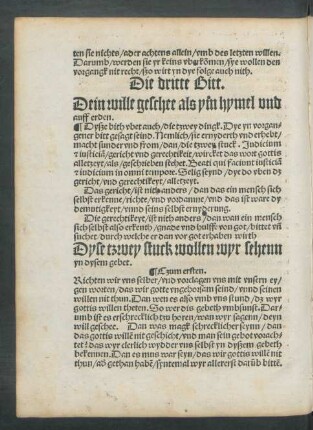 ten sie nichts/ader achtens allein/vnd des letzten willen.
Darumb/werden sie yr keins vbirkömen/sye wollen den
vorgangk nit recht/szo wirt yn dye folge auch nith.
Die dritte Bitt.
Dein wille geschee als yn hymel vnd
auff erden.
¶ Dysze bith vbet auch/die zwey dingk. Dye yr vorgan
gener bitt gesagt seind. Nemlich/sie ernyderth vnd erhebt/
macht sunder vnd from/dan/die tzwey stuck. Judicium
et iusticiā/gericht vnd gerechtikeit/wircket das wort gottis
alletzeyt/als/geschrieben stehet. Beati qui faciunt iusticiā
et iudicium in omni tempore. Selig seynd/dye do vben dz
gericht/vnd gerechtikeyt/alletzeyt.
Das gericht/ist nith anders/dan das ein mensch sich
selbst erkenne/richte/vnd vordamne/vnd das ist ware dy
demutigkeyt/vnnd seins selbst ernyderung.
Die gerechtikeyt/ist nith anders/dan wan ein mensch
sich selbst also erkenth/gnade vnd hulff von got/bittet vñ
suchet. durch welche er dan vor got erhaben wirth
Dyse tzwey stuck wollen wyr sehenn
yn dysem gebet.
¶ Czum ersten.
Richten wir vns selber/vnd vorclagen vns mit vnsern ey-
gen worten/das wir gotte vngehorsam seind/vnnd seinen
willen nit thun. Dan wen es also vmb vns stund/dz wyr
gottis willen theten. So wer dis gebeth vmbsunst. Dar-
umb ist es erschrecklich tzu horen/wan wyr sagenn/deyn
will geschee. Dan was magk schrecklicher seynn/dan
das gottis wille nit geschicht/vnd man sein gebot vorach-
tet? das wyr clerlich wydder vns selbst yn dysem gebeth
bekennen. Dan es mus war seyn/das wir gottis wille nit
thun/ab gethan haben/syntemal wyr allererst darüb bitte.